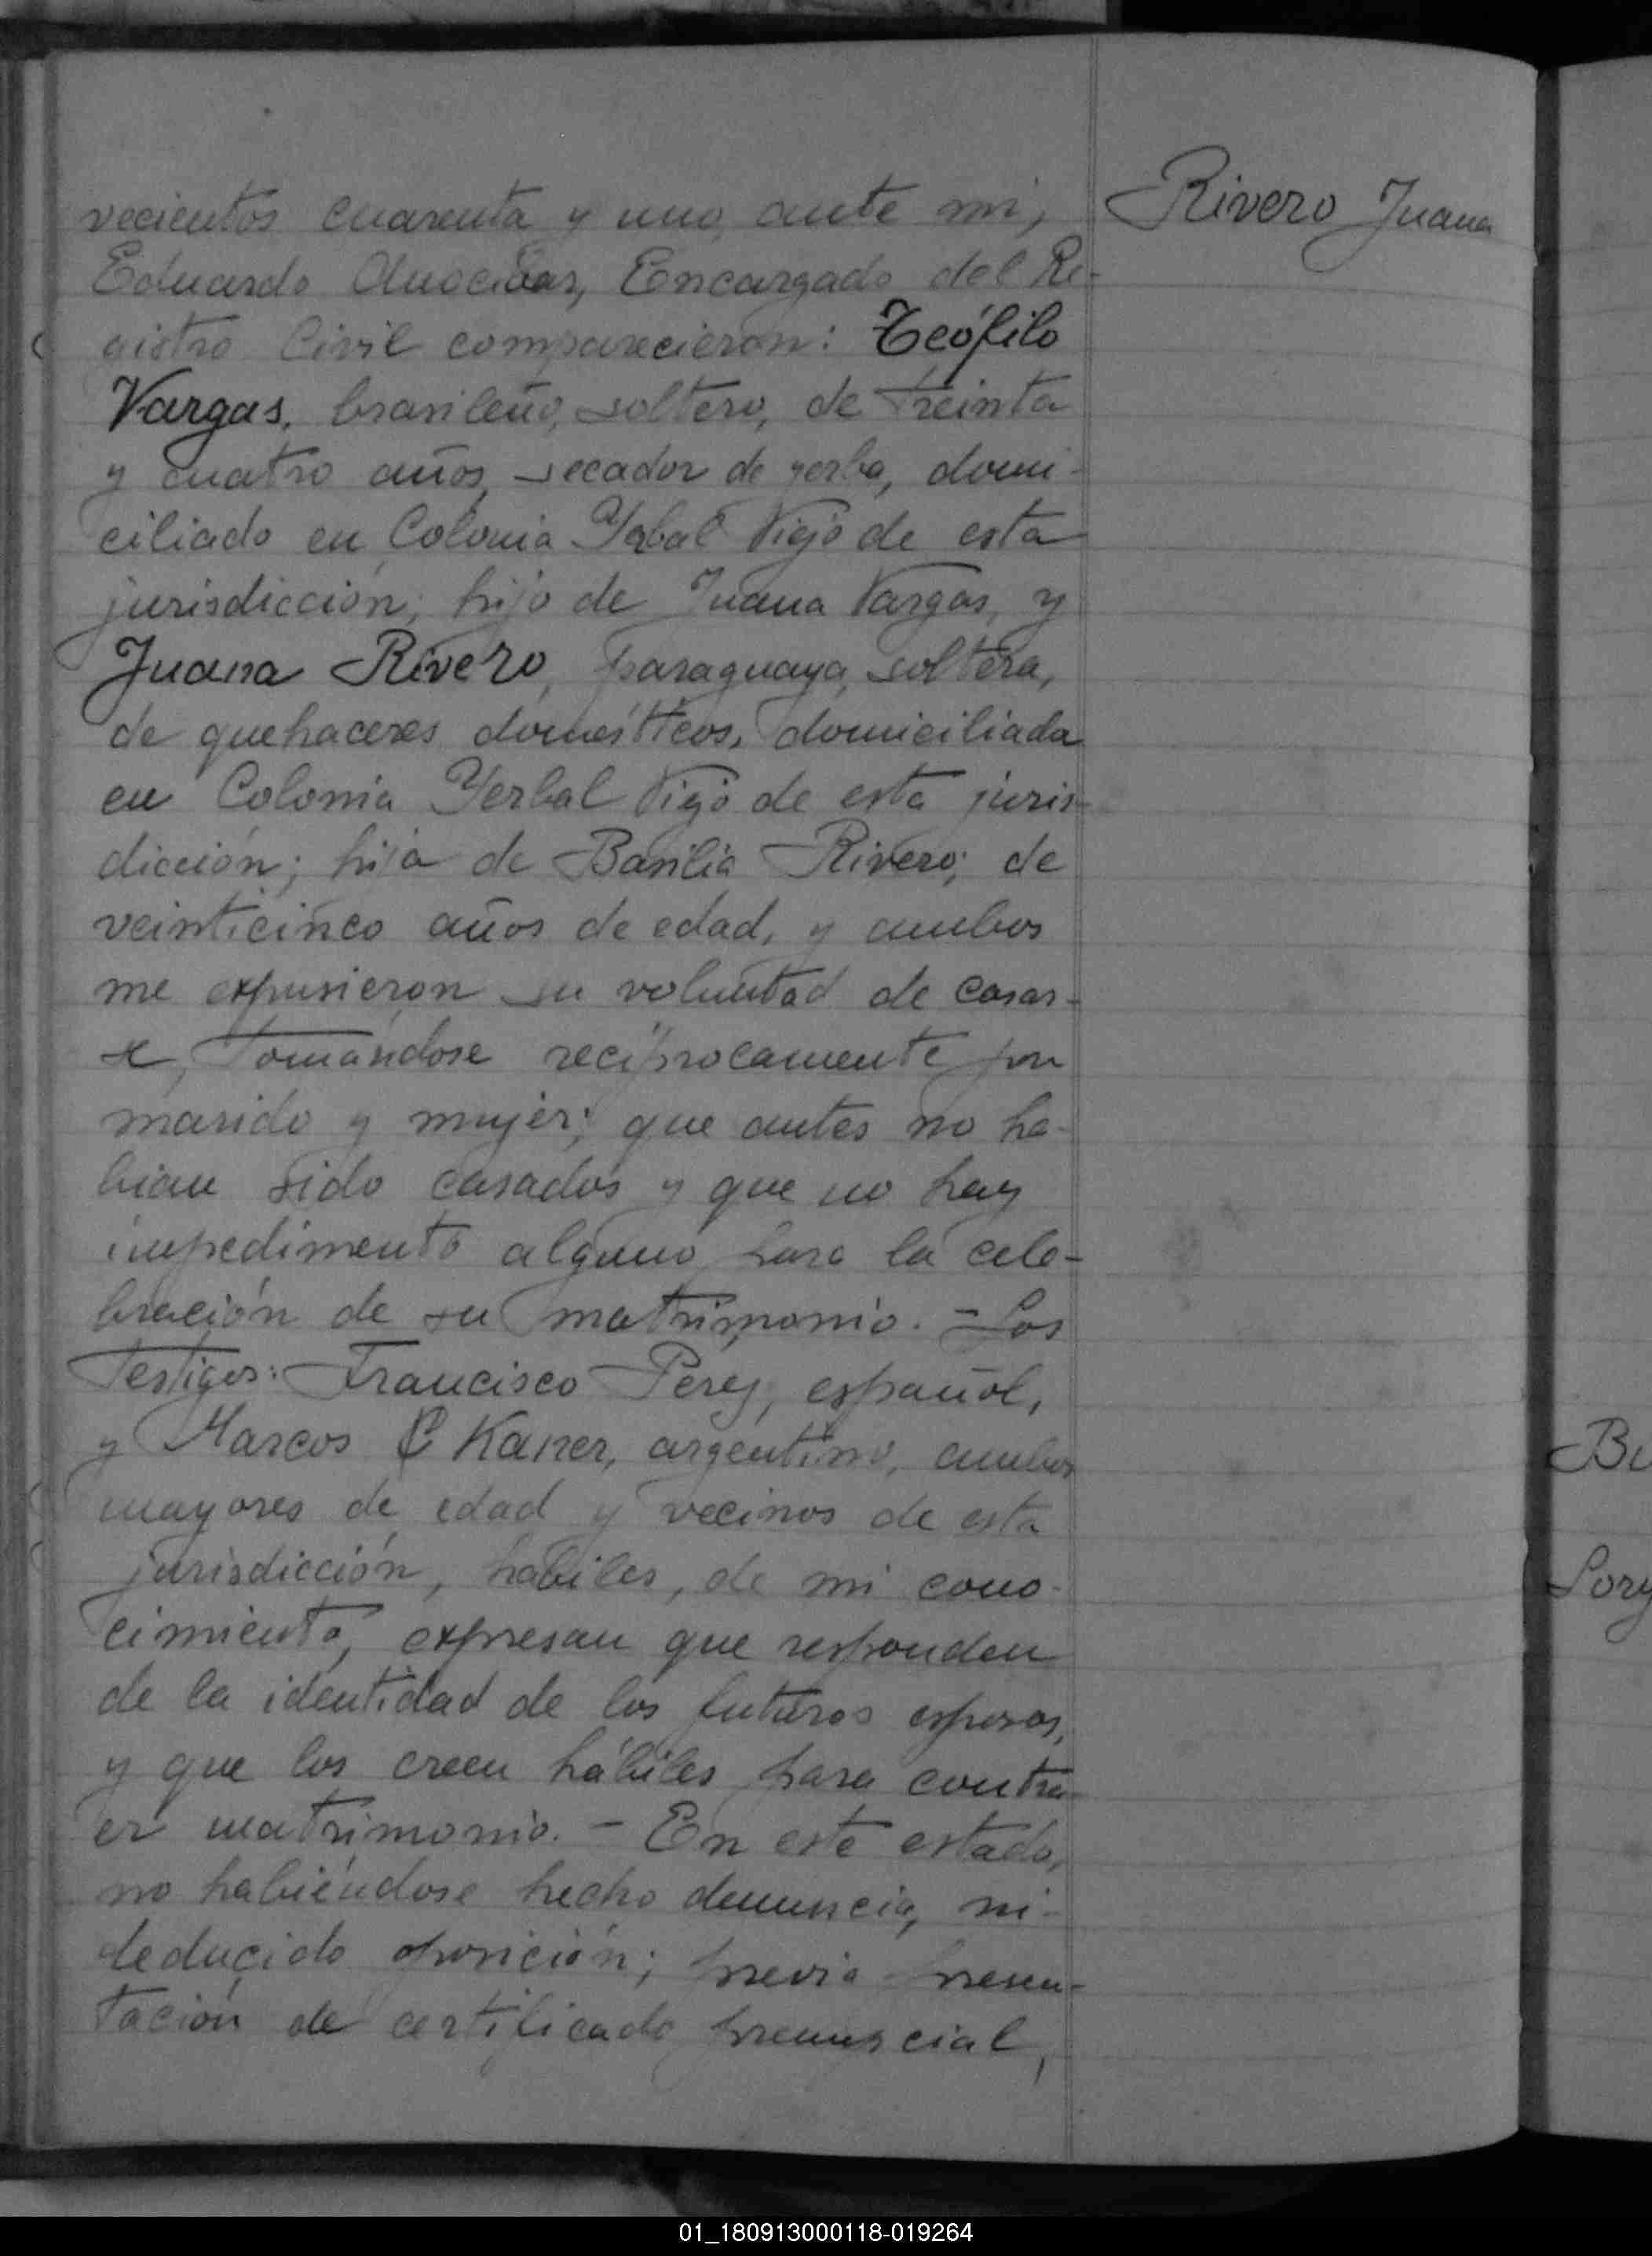 vecientos cuarenta y uno, ante mi,
Rivero Juana
Eduardo Encargado del Re-
gistro Civil comparecieron: Teófilo
Vargas, brasileño, soltero, de treinta
y cuatro años, secador de yerba, domi-
ciliado en Colonia Yerbal Viejo de esta
jurisdicción; hijo de Juana Vargas, y
Juana Rivero, paraguaya, soltera,
de quehaceres domésticos, domiciliada
en Colonia Yerbal Viejo de esta juris-
dicción; hija de Basilia Rivero; de
veinticinco años de edad, y ambos
me expusieron su voluntad de casar-
se, tomándose recíprocamente por
marido y mujer; que antes no ha-
bian sido casados y que no hay
impedimento alguno para la cele-
bración de su matrimonio. - Los
Testigos: Francisco Perez, español,
y Marcos C Kaner, argentino, ambos
mayores de edad y vecinos de esta
jurisdicción, habiles, de mi cono-
cimiento, expresan que responden
de la identidad de los futuros esposos,
y que los creen hábiles para contra-
er matrimonio. - En este estado,
no habiéndose hecho denuncia, ni
deducido oposición; previa presen-
tación de certificado prenupcial,
01_180913000118-019264